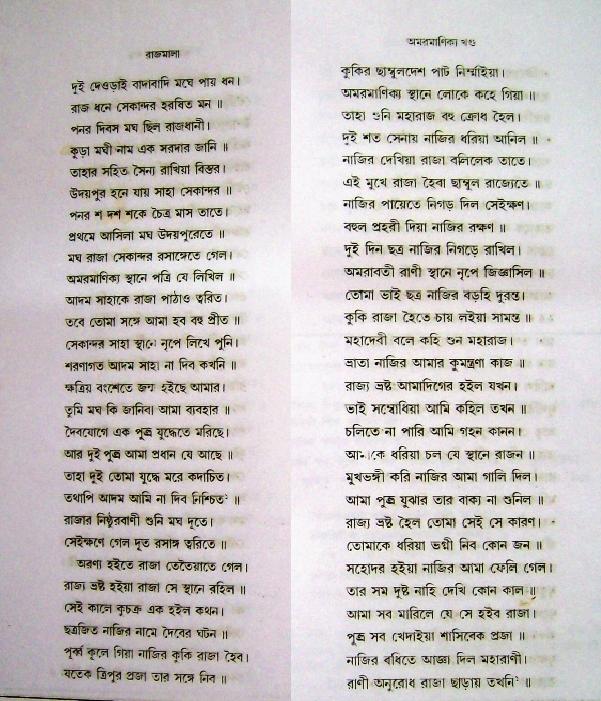 রাজমালা
দুই দেওড়াই বাদাবাদি মঘে পায় ধন।
রাজ ধনে সেকান্দর হরষিত মন ॥
পনর দিবস মঘ ছিল রাজধানী।
কুড়া মঘী নাম এক সরদার জানি ॥
তাহার সহিত সৈন্য রাখিয়া বিস্তর।
উদয়পুর হনে যায় সাহা সেকান্দর ॥
পনর শ দশ শকে চৈত্র মাস তাতে।
প্রথমে আসিলা মঘ উদয়পুরেতে ॥
মঘ রাজা সেকান্দর রসাঙ্গেতে গেল।
অমরমাণিক্য স্থানে পত্রি যে লিখিল ॥
আদম সাহাকে রাজা পাঠাও ত্বরিত।
তবে তোমা সঙ্গে আমা হব বহু প্রীত ॥
সেকান্দর সাহা স্থানে নৃপে লিখে পুনি।
শরণাগত আদম সাহা না দিব কখনি ॥
ক্ষত্রিয় বংশেতে জন্ম হইছে আমার।
তুমি মঘ কি জানিবা আমা ব্যবহার ॥
দৈবযোগে এক পুত্র যুদ্ধেতে মরিছে।
আর দুই পুত্র আমা প্রধান যে আছে ॥
তাহা দুই তোমা যুদ্ধে মরে কদাচিত।
তথাপি আদম আমি না দিব নিশ্চিত ॥
রাজার নিষ্ঠুরবাণী শুনি মঘ দূতে।
সেইক্ষণে গেল দূত রসাঙ্গ ত্বরিতে ॥
অরণ্য হইতে রাজা তেতৈয়াতে গেল।
রাজ্য ভ্রষ্ট হইয়া রাজা সে স্থানে রহিল ॥
সেই কালে কুচক্র এক হইল কথন।
ছত্রজিত নাজির নামে দৈবের ঘটন ॥
পূর্ব্ব কূলে গিয়া নাজির কুকি রাজা হৈব।
যতেক ত্রিপুর প্রজা তার সঙ্গে নিব ॥
অমরমাণিক্য খণ্ড
কুকির ছাম্বুলদেশ পাট নির্ম্মাইয়া।
অমরমাণিক্য স্থানে লোকে কহে গিয়া ॥
তাহা শুনি মহারাজ বহু ক্রোধ হৈল।
দুই শত সেনায় নাজির ধরিয়া আনিল ॥
নাজির দেখিয়া রাজা বলিলেক তাতে।
এই মুখে রাজা হৈবা ছাম্বুল রাজ্যেতে ॥
নাজির পায়েতে নিগড় দিল সেইক্ষণ।
বহুল প্রহরী দিয়া নাজির রক্ষণ ॥
দুই দিন ছত্র নাজির নিগড়ে রাখিল।
অমরাবতী রাণী স্থানে নৃপে জিজ্ঞাসিল ॥
তোমা ভাই ছত্র নাজির বড়হি দুরন্ত।
কুকি রাজা হৈতে চায় লইয়া সামন্ত ॥
মহাদেবী বলে কহি শুন মহারাজ।
ভ্রাতা নাজির আমার কুমন্ত্রণা কাজ ॥
রাজ্য ভ্রষ্ট আমাদিগের হইল যখন।
ভাই সম্বোধিয়া আমি কহিল তখন ॥
চলিতে না পারি আমি গহন কানন।
আমাকে ধরিয়া চল যে স্থানে রাজন ॥
মুখভঙ্গী করি নাজির আমা গালি দিল।
আমা পুত্র যুঝার তার বাক্য না শুনিল ॥
রাজ্য ভ্রষ্ট হৈল তোমা সেই সে কারণ।
তোমাকে ধরিয়া ভগ্নী নিব কোন জন ॥
সহোদর হইয়া নাজির আমা ফেলি গেল।
তার সম দুষ্ট নাহি দেখি কোন কাল ॥
আমা সব মারিলে যে সে হইব রাজা।
পুত্র সব খেদাইয়া শাসিবেক প্রজা ॥
নাজির বধিতে আজ্ঞা দিল মহারাণী।
রাণী অনুরোধ রাজা ছাড়ায় তখনি ॥